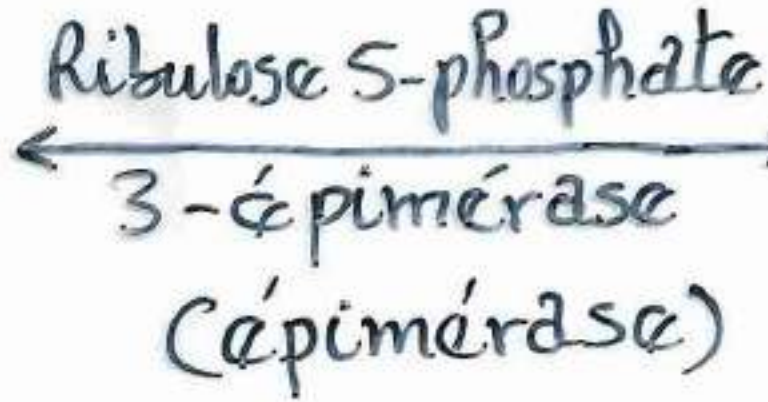 Ribulose 5-phosphate
3-épimérase
(épimérase)